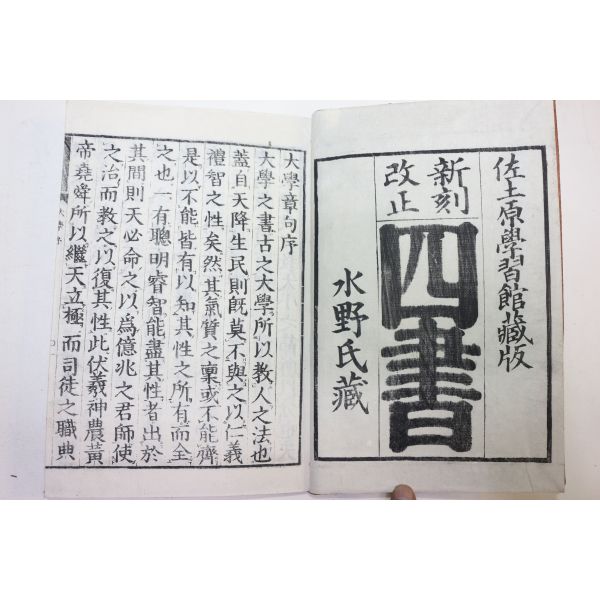 佐土原學習館藏版
新刻
改正
四書
水野氏藏
大學章句序
大學之書古之大學所以教人之法也
蓋自天降生民則既莫不與之以仁義
禮智之性矣然其氣質之稟或不能齊
是以不能皆有以知其性之所有而全
之也一有聰明睿智能盡其性者出於
其間則天必命之以爲億兆之君師使
之治而教之以復其性此伏羲神農黃
帝堯舜所以繼天立極而司徒之職典